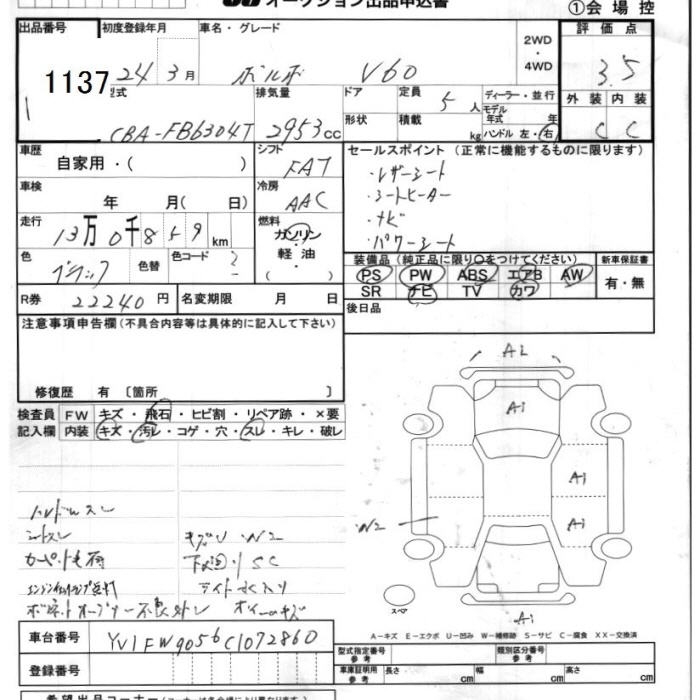 オークション出品申込書
①会場控
出品番号 初度登録年月 車名・グレード 評価点
1137 24年3月 ボルボ V60 2WD・4WD 3.5
型式 排気量 ドア 定員 ディーラー・並行 外装 内装
CBA-FB6304T 2953cc 形状 積載 5人 kg モデル年式 年 ハンドル 左・右 C C
車歴 シフト セールスポイント (正常に機能するものに限ります)
自家用・( ) FAT ・レザーシート
車検 冷房 ・シートヒーター
年 月( 日) AAC ・ナビ
走行 燃料 ・パワーシート
13万0千859km ガソリン・軽油・( )
色 ブラック 色替 色コード
装備品(純正品に限り○をつけてください) 新車保証書
PS PW ABS エアB AW 有・無
SR ナビ TV カワ
R券 22240円 名変期限 月 日 後日品
注意事項申告欄(不具合内容等は具体的に記入して下さい)
修復歴 有 〔箇所 〕
検査員 FW キズ・飛石・ヒビ割・リペア跡・×要
記入欄 内装 キズ・汚レ・コゲ・穴・スレ・キレ・破レ
A2
A1
A1
A1
W2
A1
スペア
ハンドルスレ
シートスレ キズU・W2
下廻り SC
A-キズ E-エクボ U-凹み W-補修跡 S-サビ C-腐食 XX-交換済
車台番号 YV1FW9056C1072860
型式指定番号 参考 類別区分番号 参考
登録番号 車庫証明用 参考 長さ cm 幅 cm 高さ cm
希望出品コーナー